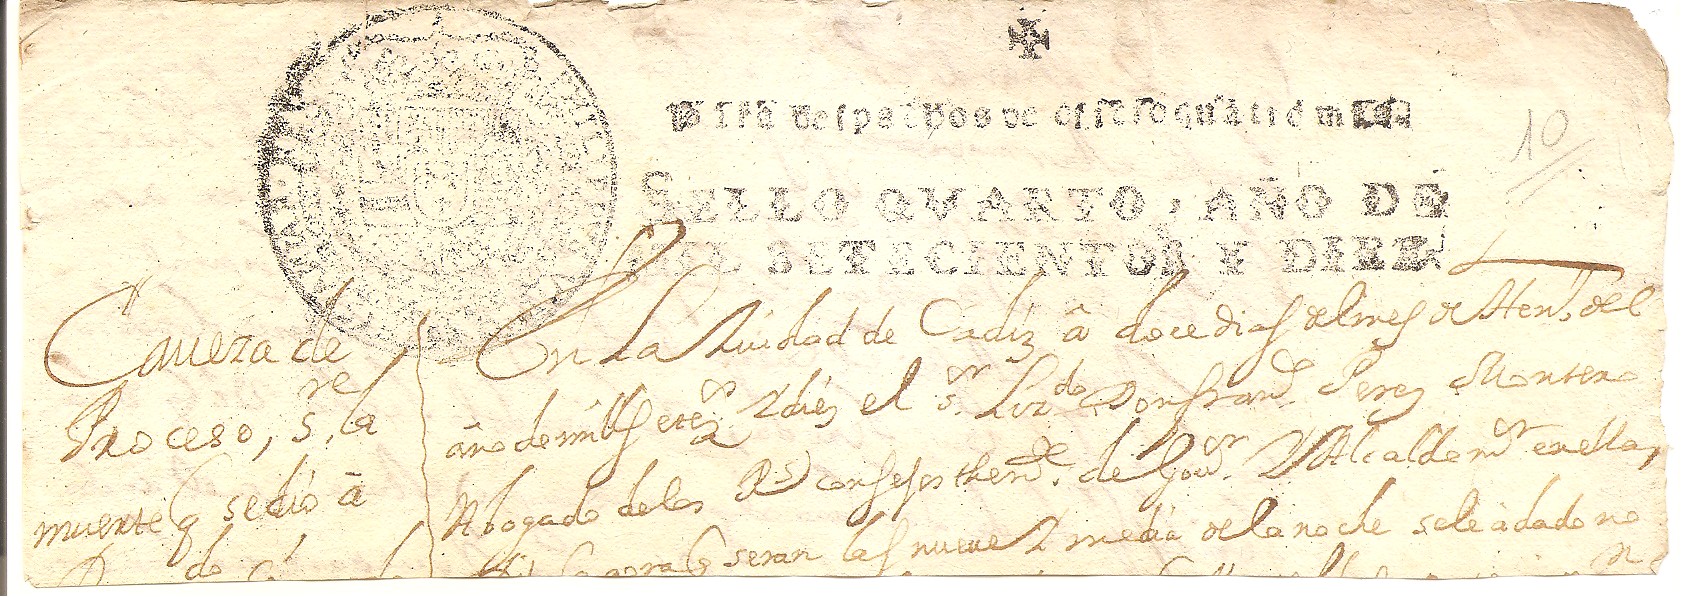 Para despachos de oficio quatro mrs.
10
SELLO QVARTO, AÑO DE
MIL SETECIENTOS Y DIEZ
Caveza de
Proceso, s.re la
muerte q sedió â
En La Ziudad de Cadiz â doce dias del mes de Hen.o del
año de mill setez.os Y diez el s.or Liz.do Don fran.co Perez Montero
Abogado de los R.s consejos then.te de Gov.or Y Alcalde m.or en ella,
seran las nueve Y media de la noche sele a dado no